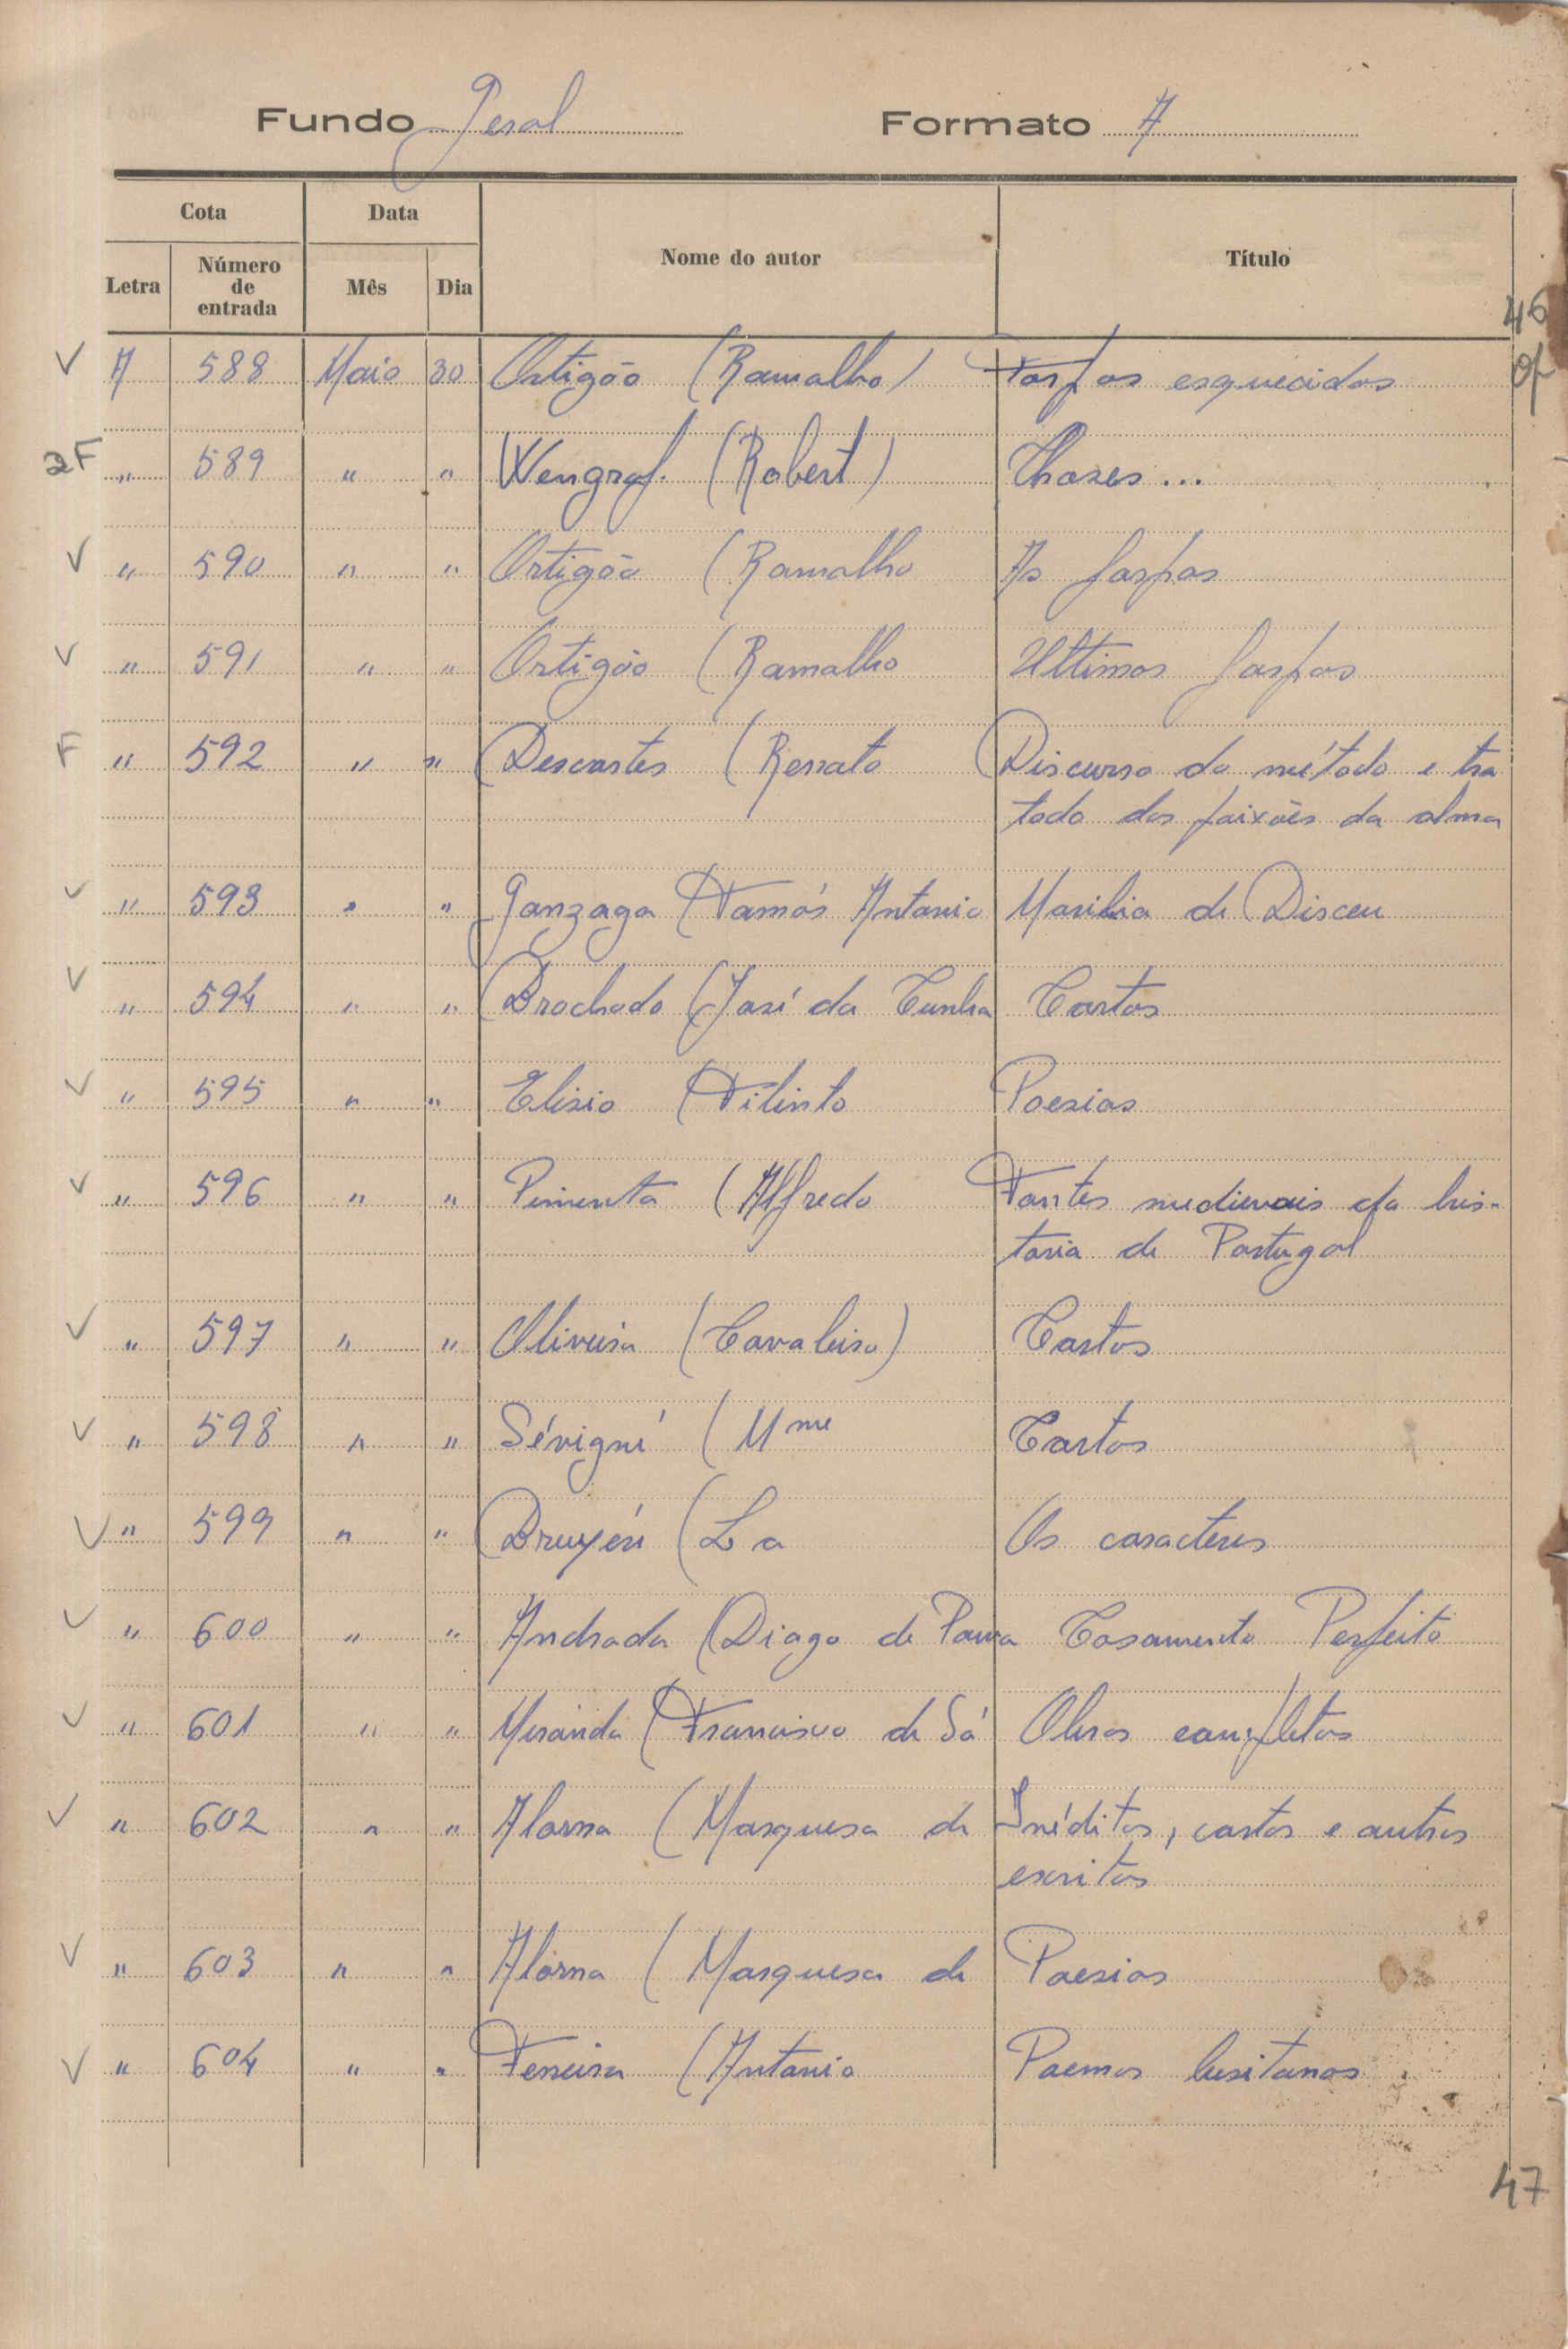 Fundo Geral Formato A
Cota Data Nome do autor Título
Letra Número de entrada Mês Dia
46
V A 588 Maio 30 Ortigão (Ramalho) Farpas esquecidas
2F " 589 " " Wengraf. (Robert) ...
V " 590 " " Ortigão (Ramalho As farpas
V " 591 " " Ortigão (Ramalho Ultimas farpas
F " 592 " " Descartes (Renato Discurso do método e tra
tado das paixões da alma
V " 593 " " Gonzaga (Tomás Antonio Marilia de Dirceu
V " 594 " " Brochado (José da Cunha Cartas
V " 595 " " Elisio (Filinto Poesias
V " 596 " " Pimenta (Alfredo Fontes medievais da his-
toria de Portugal
V " 597 " " Oliveira (Cavaleiro) Cartas
V " 598 " " Sévigné (Mme Cartas
V " 599 " " Bruyére (La Os caracteres
V " 600 " " Andrada (Diogo de Paiva Casamento Perfeito
V " 601 " " Miranda (Francisco de Sá Obras completas
V " 602 " " Alorna (Marquesa de Inéditos, cartas e outros
escritos
V " 603 " " Alorna (Marquesa de Poesias
V " 604 " " Ferreira (Antonio Poemas lusitanos
47